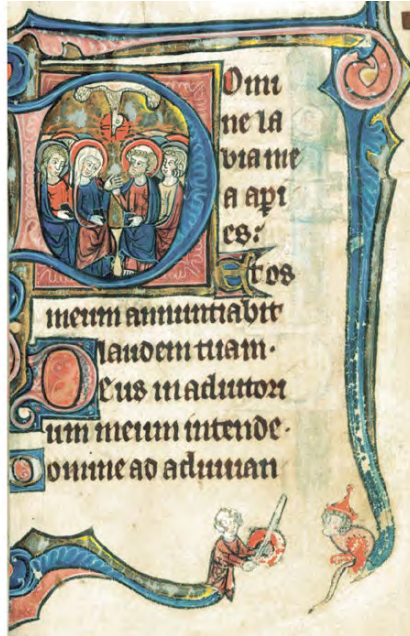 Domi
ne la
bia me
a api
es:
Et os
meum annuntiabit
laudem tuam.
Deus in adiutori
um meum intende.
Domine ad adiuuan